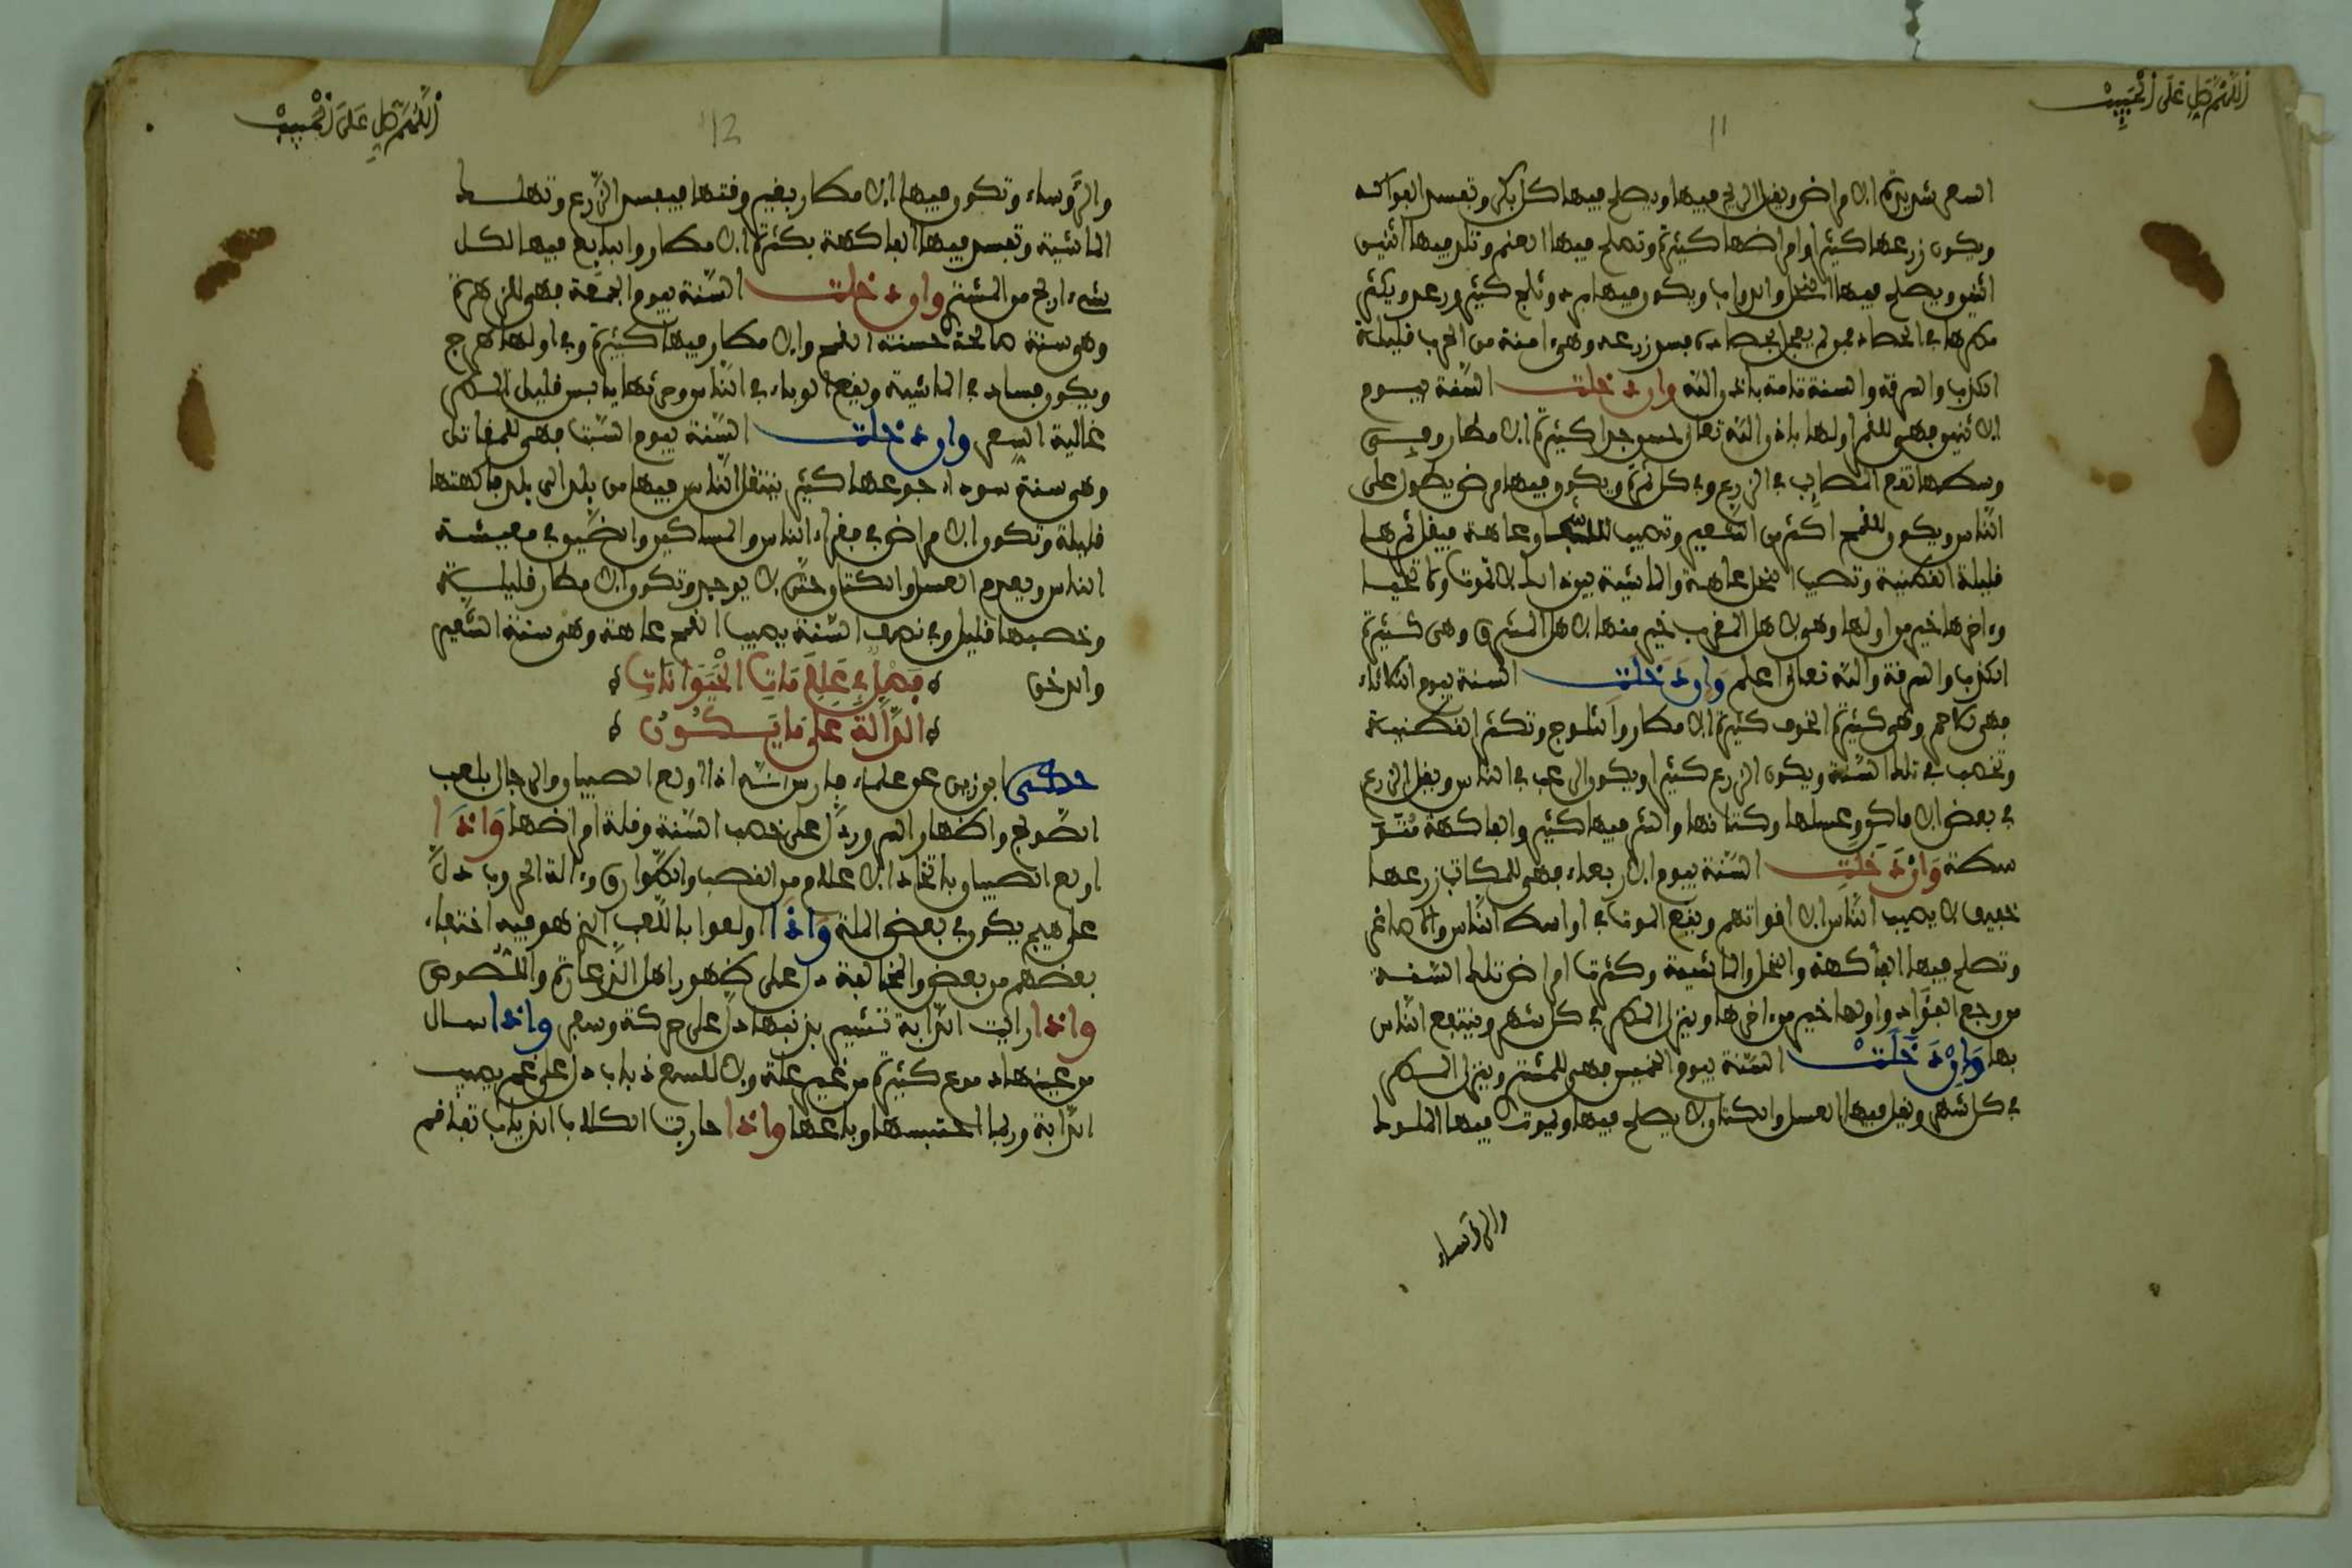 اللهم صل على الحبيب
11
السعر شديدة الامراض ويقل الريح فيها ويصلح فيها كل بكر وتفسد الفواكه
ويكون زرعها كثيرا وامراضها كثيرة وتصلح فيها الغنم وتلد فيها اثنين
اثنين ويصلح فيها النحل والدواب ويكون فيها برد وثلج كثير ورعد ويكثر
مطرها في الحصاد فمن لم يعجل بحصاده فسد زرعه وهي امنة من الحرب قليلة
الكذب والسرقة والسنة تامة باذن الله وان دخلت السنة يوم
الاثنين فهي للقمر اولها باذن الله تعالى حسن جدا كثيرة الامطار وفي
وسطها تقع المصايب في الزرع وفي كل ثمرة ويكون فيها مرض يطول على
الناس ويكون القمح اكثر من الشعير وتصيب الشجر عاهة فيقل ثمرها
قليلة القطنية وتصيب النحل عاهة والماشية بين ذلك لا تموت ولا تحيا
وءاخرها خير من اولها وهي لاهل المغرب خير منها لاهل المشرق وهي كثيرة
الكذب والسرقة والله تعالى اعلم وان دخلت السنة يوم الثلاثاء
فهي للاحمر وهي كثيرة الخوف كثيرة الامطار والثلوج وتكثر القطنية
وتخصب في تلك السنة ويكون الزرع كثيرا ويكون الرعب في الناس ويقل الزرع
في بعض الاماكن وعسلها وكتانها والتمر فيها كثير والفاكهة متو
سطة وان دخلت السنة يوم الاربعاء فهي للكاتب زرعها
خفيف لا يصيب الناس الا اقواتهم ويقع الموت في اواسط الناس والاصاغر
وتصلح فيها الفاكهة والنحل والماشية وكثرت امراض تلك السنة
من وجع الفؤاد واولها خير من ءاخرها وينزل المطر في كل شهر وينتفع الناس
بها وان دخلت السنة يوم الخميس فهي للمشتري وينزل المطر
في كل شهر ويقل فيها العسل والكتان لا يصلح فيها ويموت فيها الملوك
والرؤساء
اللهم صل على الحبيب
12
والرؤساء وتكون فيها الامطار بغير وقتها فيفسد الزرع وتهلك
الماشية وتفسد فيها الفاكهة بكثرة الامطار والبايع فيها لكل
شيء اربح من المشتري وان دخلت السنة يوم الجمعة فهي للزهرة
وهي سنة صالحة حسنة القمح والامطار فيها كثيرة وفي اولها هرج
ويكون فساد في الماشية ويقع الوباء في الناس وحرثها يابس قليل المطر
غالية السعر وان دخلت السنة يوم السبت فهي للمقاتل
وهي سنة سوداء جوعها كثير ينتقل الناس فيها من بلد الى بلد فاكهتها
قليلة وتكون الامراض في فقراء الناس والمساكين والضيق في معيشة
الناس ويعدم العسل والكتان حتى لا يوجد وتكون الامطار قليلة
وخصبها قليل وفي نصف السنة يصيب القمح عاهة وهي سنة الشعير
والدخن فصل في علامات الحيوانات
الدالة على ما يكون
حكى ابو زيد عن علماء فارس انه اذا اولع الصبيان والرجال بلعب
الصولج واظهار السرور دل على خصب السنة وقلة امراضها واذا
اولع الصبيان باتخاذ الاعلام من القصب والطوارق وءالة الحروب دل
على هيج يكون في بعض الملة واذا اولعوا باللعب الذي هو فيه اختفاء
بعضهم من بعض والمخالفة دل على ظهور اهل الذعارة واللصوص
واذا رايت الدابة تشير بذنبها دل على حركة وسفر واذا سال
من عينها دموع كثيرة من غير علة ولا للسع ذباب دل على غم يصيب
الدابة وربما احتبسها وباعها واذا صارت الكلاب الذياب تفاقم